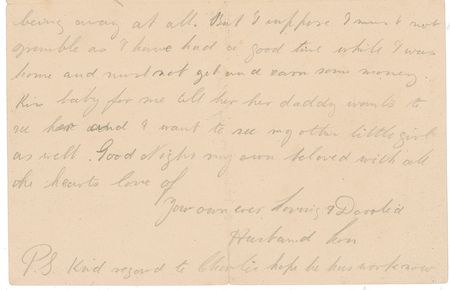 being away at all. But I suppose I must not
grumble as I have had a good time while I was
home and must not get and earn some money.
Kiss baby for me tell her her daddy wants to
see her and I want to see my other little girl
as well. Good Night my own beloved with all
the hearts love of
Your own ever loving & Devoted
Husband
P.S Kind regard to Charlie hope he has work now